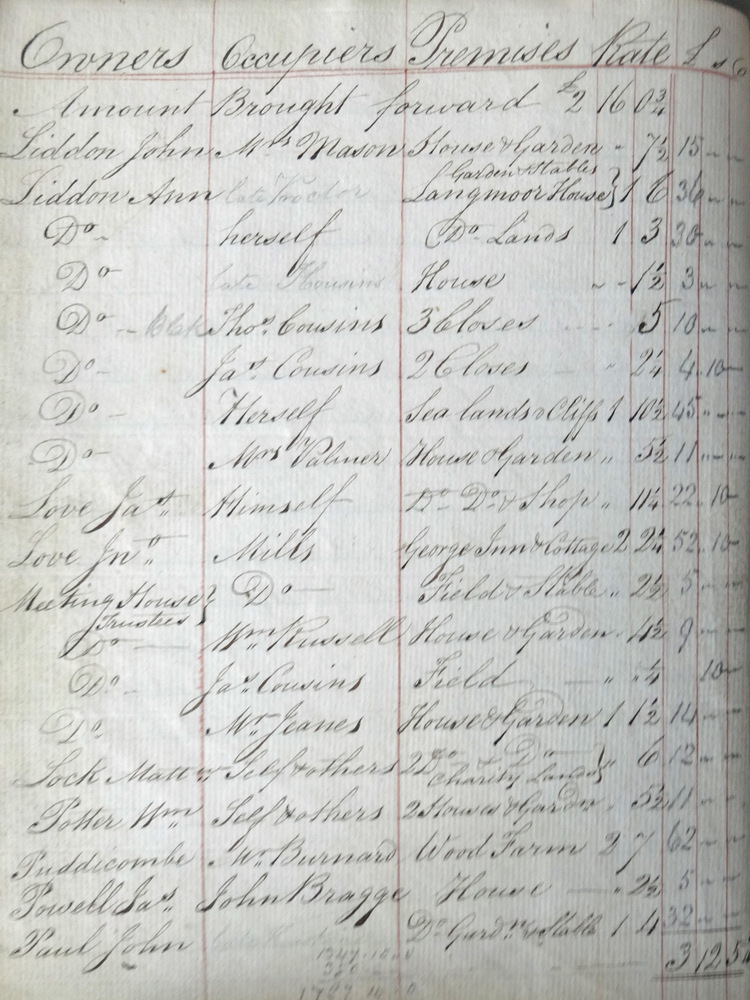 Owners Occupiers Premises Rate £ s
Amount Brought forward £2 16 0¾
Liddon John Mrs Mason House & Garden " 7½ 15 " "
Liddon Ann late Proctor Garden & Stables Langmoor House } 1 6 36 " "
Do herself Do Lands 1 3 30 " "
Do late Cousins House " " 1½ 3 " "
Do Thos. Cousins 3 Closes 5 10 " "
Do Jas. Cousins 2 Closes " 2¼ 4 10 "
Do Herself Sea lands & Cliffs 1 10½ 45 " "
Do Mrs Valmer House & Garden " 5½ 11 " "
Love Jas. Himself Do Do & Shop " 11¼ 22 10
Love Jno. Mills George Inn & Cottage 2 2¼ 52 10
Meeting House Trustees } Do Field & Stable " 2½ 5 " "
Do Wm Russell House & Garden " 4½ 9 " "
Do Jas. Cousins Field " " ¼ 10
Do Mr. Jeanes House & Garden 1 1½ 14 " "
Lock Mattw Self & others 2 Do & Do Charity Lands } 6 12 " "
Potter Wm Self & others 2 Houses & Gardn " 5½ 11 " "
Puddicombe Mr. Burnard Wood Farm 2 7 62 " "
Powell Jas. John Bragge House " 2½ 5 " "
Paul John Do Gardn & Stable 1 4 32 " "
3 12 5